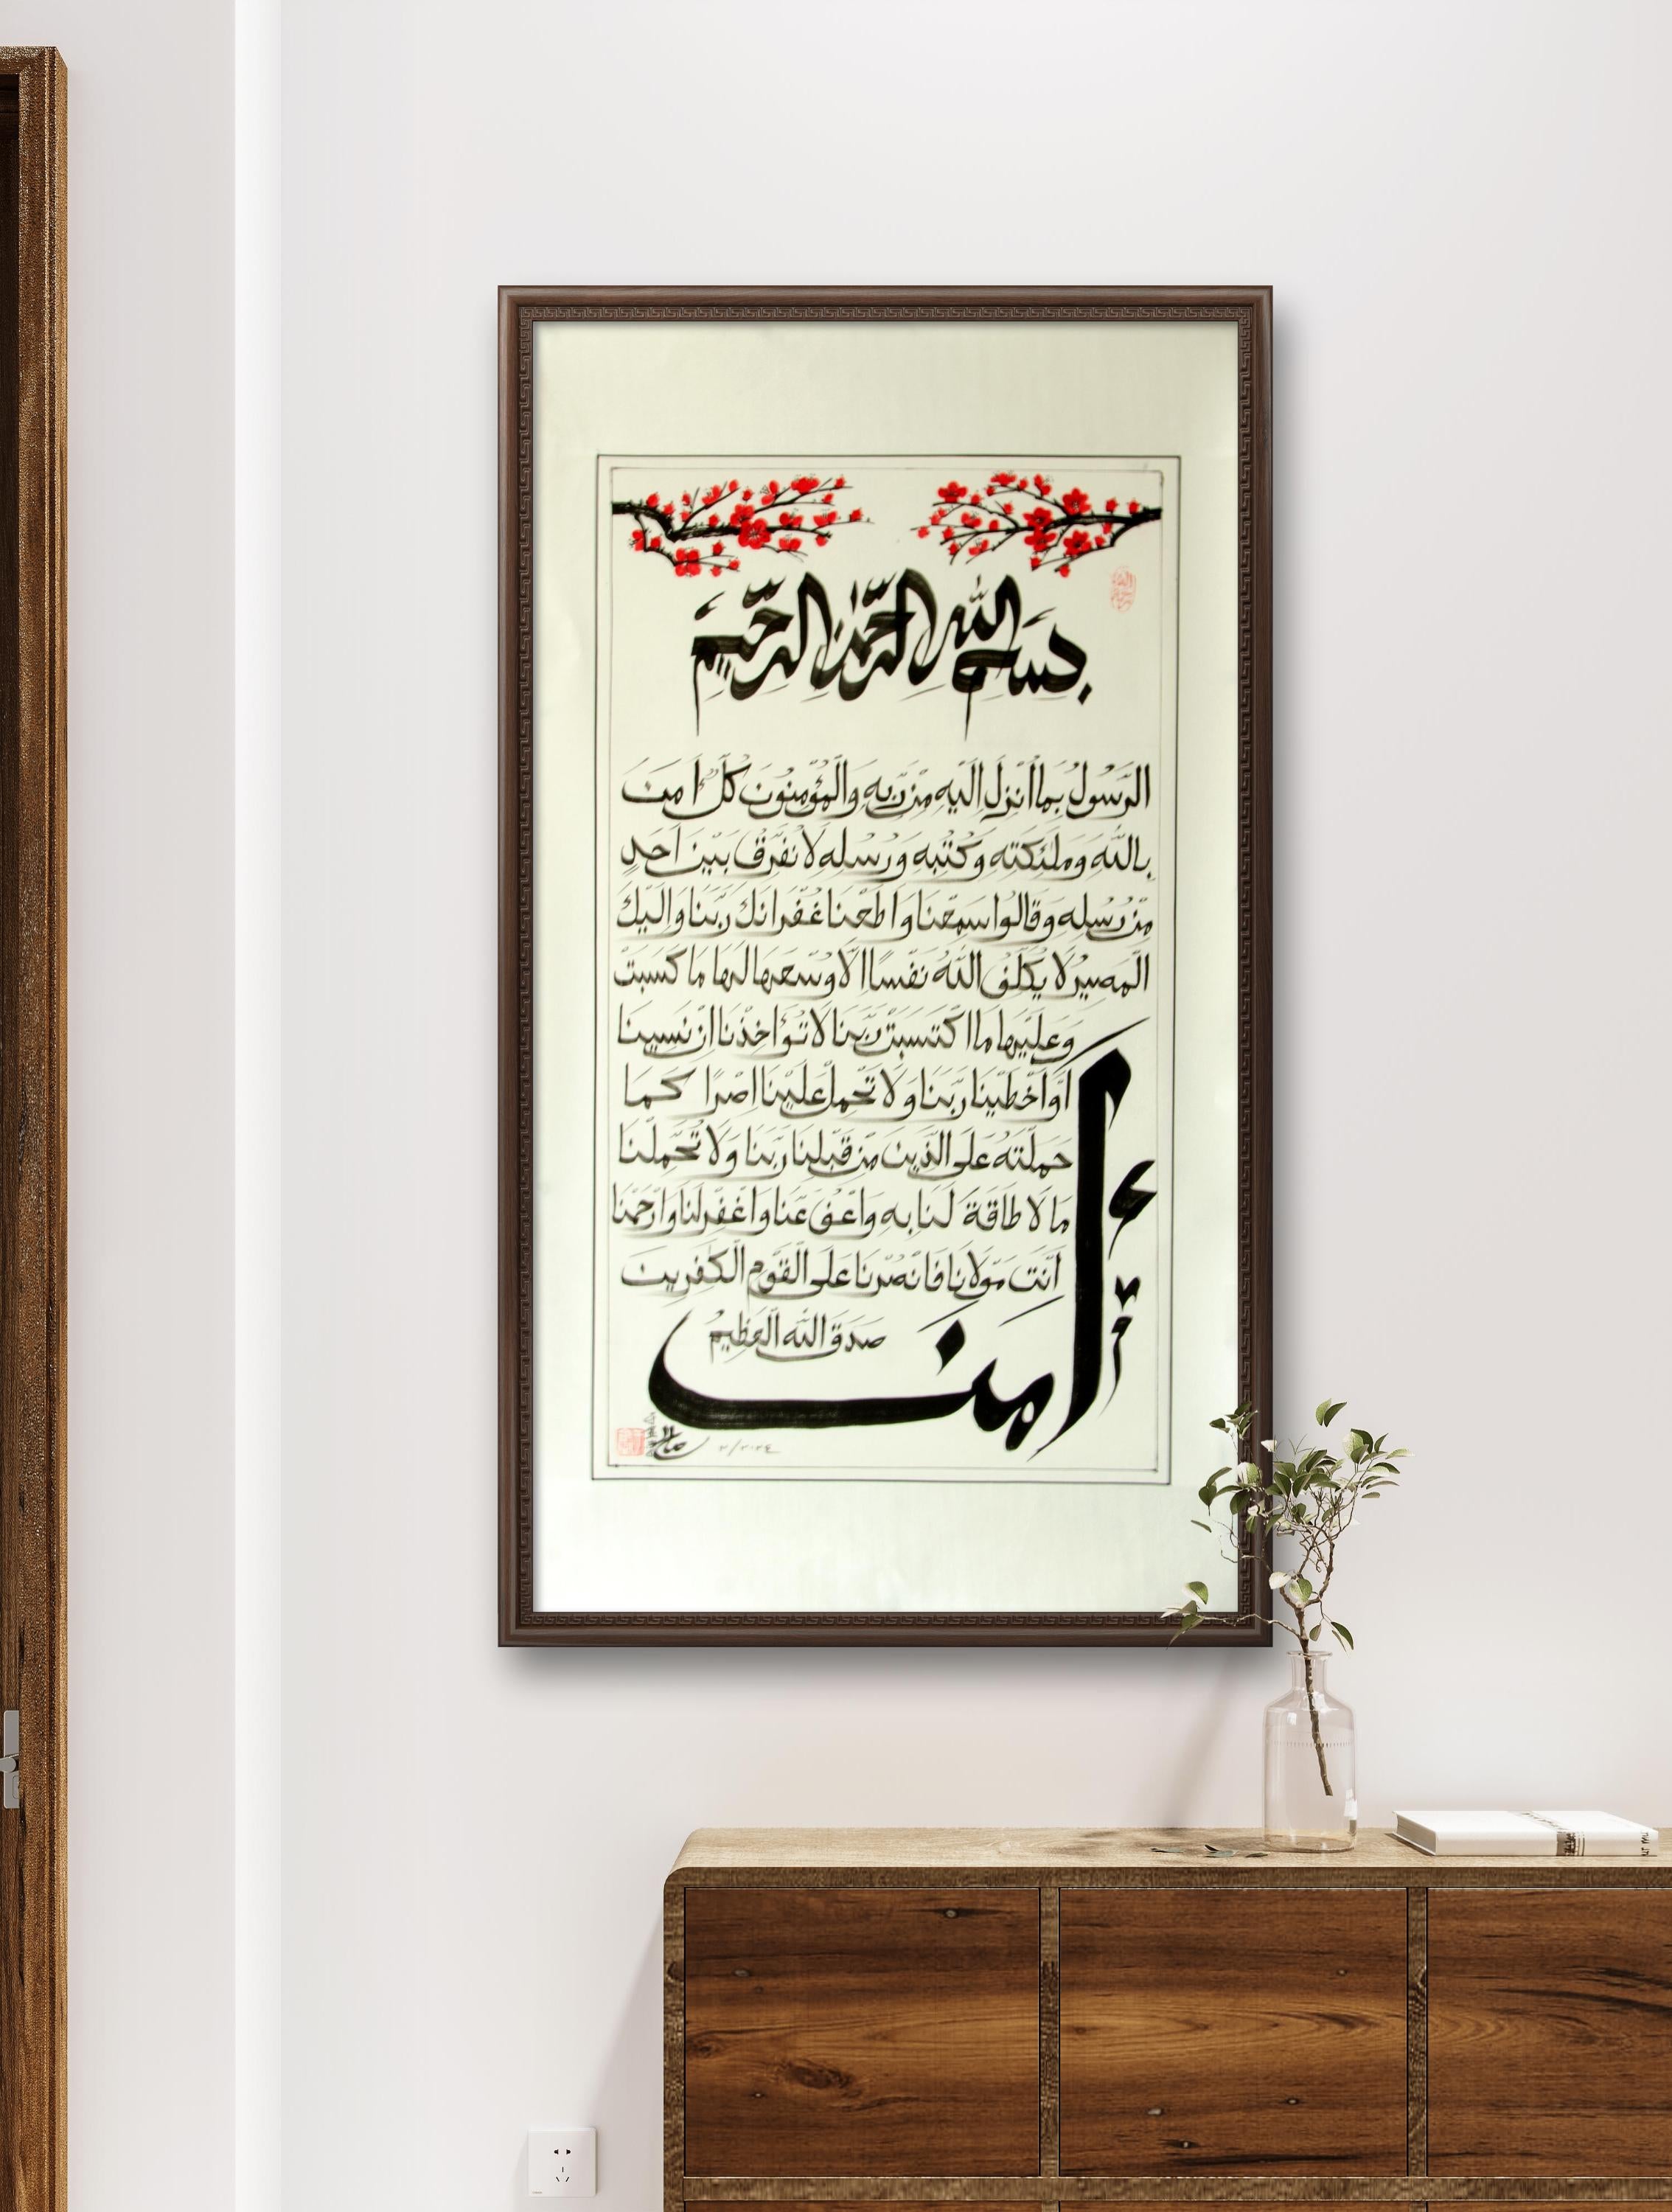 بسم الله الرحمن الرحيم
امن
الرسول بما انزل اليه من ربه والمؤمنون كل امن
بالله وملئكته وكتبه ورسله لا نفرق بين احد
من رسله وقالوا سمعنا واطعنا غفرانك ربنا واليك
المصير لا يكلف الله نفسا الا وسعها لها ما كسبت
وعليها ما اكتسبت ربنا لا تؤاخذنا ان نسينا
او اخطينا ربنا ولا تحمل علينا اصرا كما
حملته على الذين من قبلنا ربنا ولا تحملنا
ما لا طاقة لنا به واعف عنا واغفر لنا وارحمنا
انت مولانا فانصرنا على القوم الكفرين
صدق الله العظيم
٢/٢٠٢٤